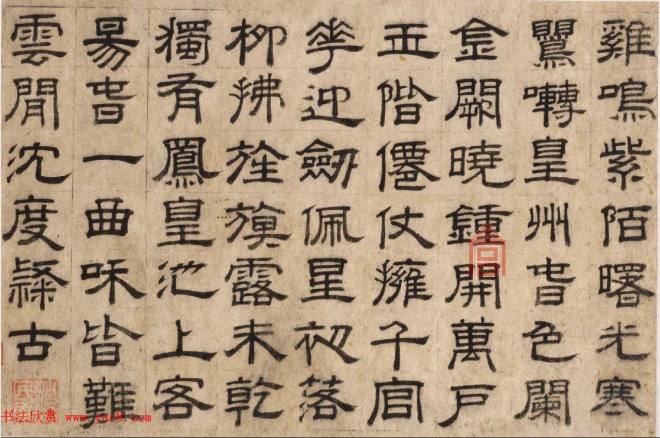 雞鳴紫陌曙光寒
鸎囀皇州萅色闌
金闕曉鍾開萬戶
玉階僊仗擁千官
華迎劒佩星初落
柳拂旌旗露未乾
獨有鳳皇池上客
昜萅一曲咊皆難
雲閒沈度隸古
书法欣赏